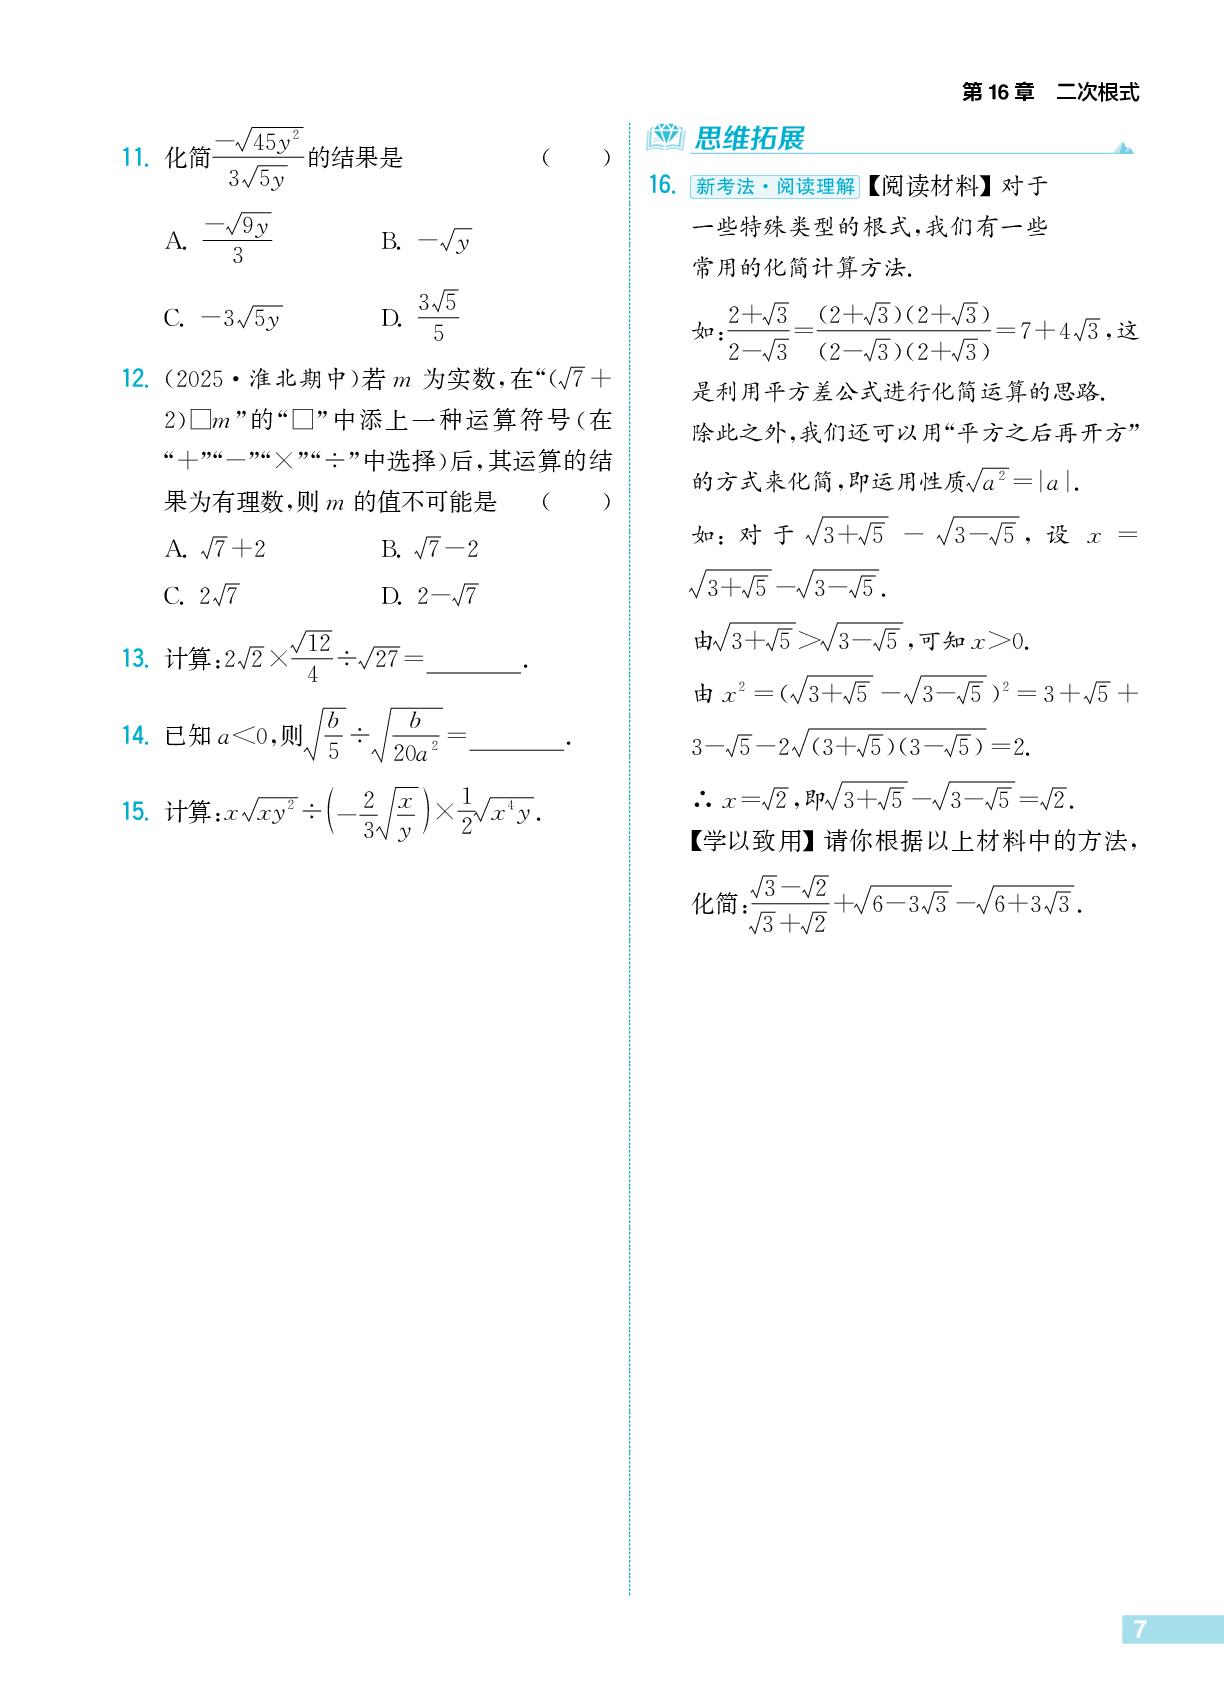 第 16 章　二次根式
11. 化简$\frac{-\sqrt{45y^2}}{3\sqrt{5y}}$的结果是 (　　)
A. $\frac{-\sqrt{9y}}{3}$　　B. $-\sqrt{y}$
C. $-3\sqrt{5y}$　　D. $\frac{3\sqrt{5}}{5}$
12. (2025·淮北期中)若 m 为实数,在“($\sqrt{7}$+
2)□m”的“□”中添上一种运算符号(在
“+”“-”“×”“÷”中选择)后,其运算的结
果为有理数,则 m 的值不可能是 (　　)
A. $\sqrt{7}+2$　　B. $\sqrt{7}-2$
C. $2\sqrt{7}$　　D. $2-\sqrt{7}$
13. 计算:$2\sqrt{2}×\frac{\sqrt{12}}{4}÷\sqrt{27}=$________.
14. 已知 a<0,则$\sqrt{\frac{b}{5}}÷\sqrt{\frac{b}{20a^2}}=$________.
15. 计算:$x\sqrt{xy^2}÷\left(-\frac{2}{3}\sqrt{\frac{x}{y}}\right)×\frac{1}{2}\sqrt{x^4y}$.
思维拓展
16. 新考法·阅读理解【阅读材料】对于
一些特殊类型的根式,我们有一些
常用的化简计算方法.
如:$\frac{2+\sqrt{3}}{2-\sqrt{3}}=\frac{(2+\sqrt{3})(2+\sqrt{3})}{(2-\sqrt{3})(2+\sqrt{3})}=7+4\sqrt{3}$,这
是利用平方差公式进行化简运算的思路.
除此之外,我们还可以用“平方之后再开方”
的方式来化简,即运用性质$\sqrt{a^2}=|a|$.
如:对于$\sqrt{3+\sqrt{5}}-\sqrt{3-\sqrt{5}}$,设 x =
$\sqrt{3+\sqrt{5}}-\sqrt{3-\sqrt{5}}$.
由$\sqrt{3+\sqrt{5}}>\sqrt{3-\sqrt{5}}$,可知 x>0.
由 $x^2=(\sqrt{3+\sqrt{5}}-\sqrt{3-\sqrt{5}})^2=3+\sqrt{5}+$
$3-\sqrt{5}-2\sqrt{(3+\sqrt{5})(3-\sqrt{5})}=2$.
∴ $x=\sqrt{2}$,即$\sqrt{3+\sqrt{5}}-\sqrt{3-\sqrt{5}}=\sqrt{2}$.
【学以致用】请你根据以上材料中的方法,
化简:$\frac{\sqrt{3}-\sqrt{2}}{\sqrt{3}+\sqrt{2}}+\sqrt{6-3\sqrt{3}}-\sqrt{6+3\sqrt{3}}$.
7